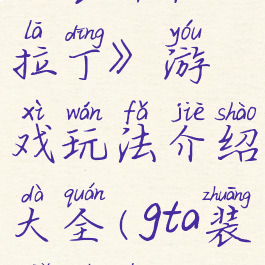 lā dīng yóu
拉丁》游
xì wán fǎ jiè shào
戏玩法介绍
dà quán zhuāng
大全(gta装